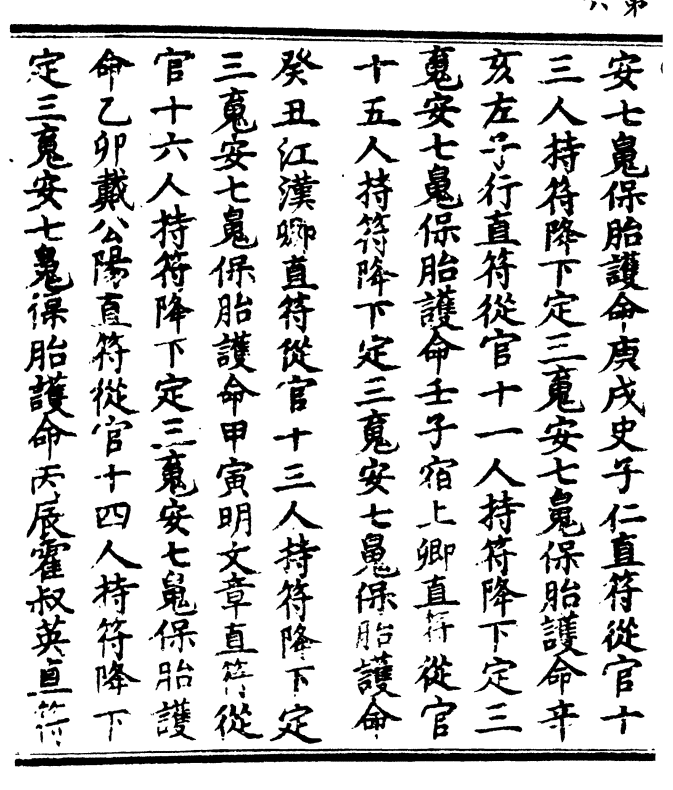 安七魄保胎護命庚戌史子仁直符從官十
三人持符降下定三䰟安七魄保胎護命辛
亥左子行直符從官十一人持符降下定三
䰟安七魄保胎護命壬子宿上卿直符從官
十五人持符降下定三䰟安七魄保胎護命
癸丑江漢卿直符從官十三人持符降下定
三䰟安七魄保胎護命甲寅明文章直符從
官十六人持符降下定三䰟安七魄保胎護
命乙卯戴公陽直符從官十四人持符降下
定三䰟安七魄保胎護命丙辰霍叔英直符